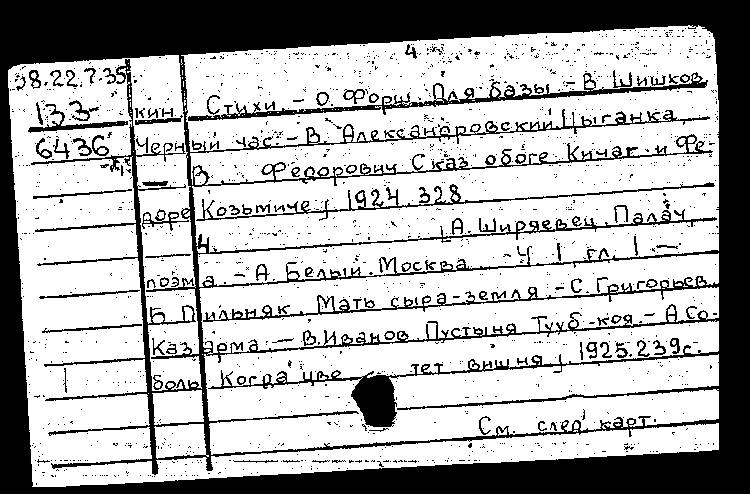 4
38.22.7.35.
133-
6436
кин. Стихи. - О. Форш. Для базы - В. Шишков
Черный час. - В. Александровский. Цыганка
- В. Федорович Сказ обоге Кичаг и Фе-
доре Козьмиче; 1924. 328.
4. ; А. Ширяевец. Палач,
поэма. - А. Белый. Москва. - Ч. 1, гл. 1 -
Б Пильняк. Мать сыра-земля. - С. Григорьев.
Казарма. - В. Иванов. Пустыня Тууб-коя. - А. Со-
боль Когда цветет вишня; 1925. 239с.
См. след. карт.